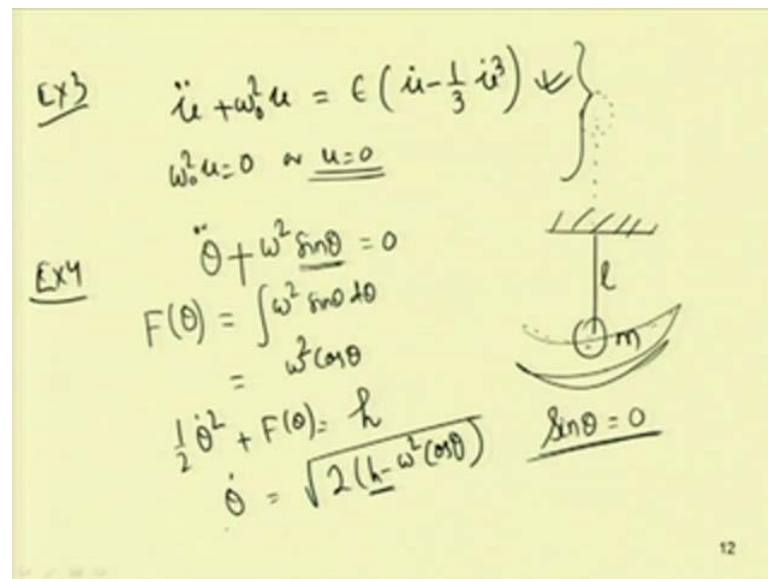 Ex3
ü + ω₀² u = ϵ ( u̇ - 1/3 u̇³ )
ω₀² u = 0 or u = 0
Ex4
θ̈ + ω² sinθ = 0
F(θ) = ∫ ω² sinθ dθ
= ω² cosθ
1/2 θ̇² + F(θ) = h
θ̇ = √2(h - ω² cosθ)
l
m
sinθ = 0
12